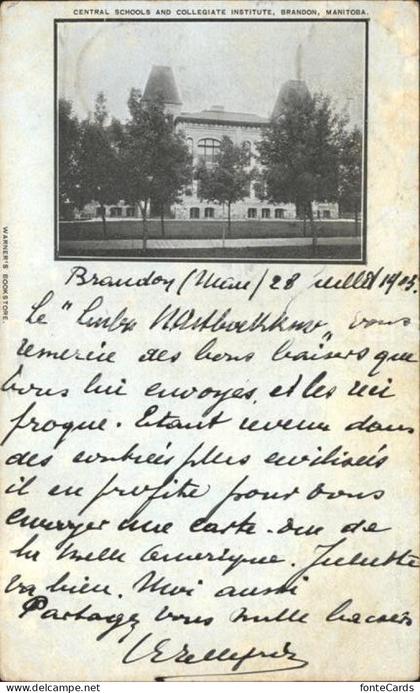 CENTRAL SCHOOLS AND COLLEGIATE INSTITUTE, BRANDON, MANITOBA.
WARNER'S BOOKSTORE.
Brandon (Man) 28 juillet 1905.
Le " vous
remercie des bons baisers que
vous lui envoyés, et les reci
proque. Etant revenu dans
des contrées plus civilisées
il en profite pour vous
envoyer une carte. vue de
la belle Amerique. Juliette
va bien. Moi aussi
Partagez vous mille baisers
www.delcampe.net fonteCards